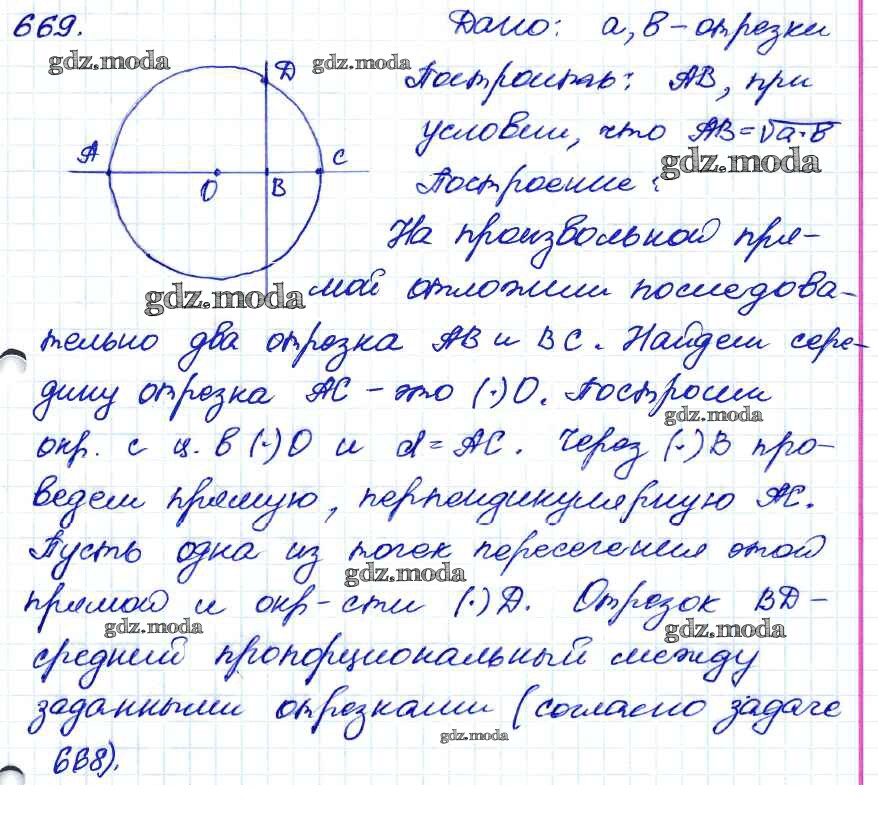 669.
Дано: a, b – отрезки
gdz.moda
gdz.moda
D
Построить: AB, при
условии, что AB = √a·b
A
C
gdz.moda
O
B
Построение:
На произвольной пря-
gdz.moda
мой отложим последова-
тельно два отрезка AB и BC. Найдем сере-
дину отрезка AC – это (·)O. Построим
gdz.moda
окр. с ц. в (·)O и d = AC. Через (·)B про-
ведем прямую, перпендикулярную AC.
Пусть одна из точек пересечения этой
gdz.moda
прямой и окр-сти (·)D. Отрезок BD –
gdz.moda
gdz.moda
средний пропорциональный между
заданными отрезками (согласно задаче
gdz.moda
668).